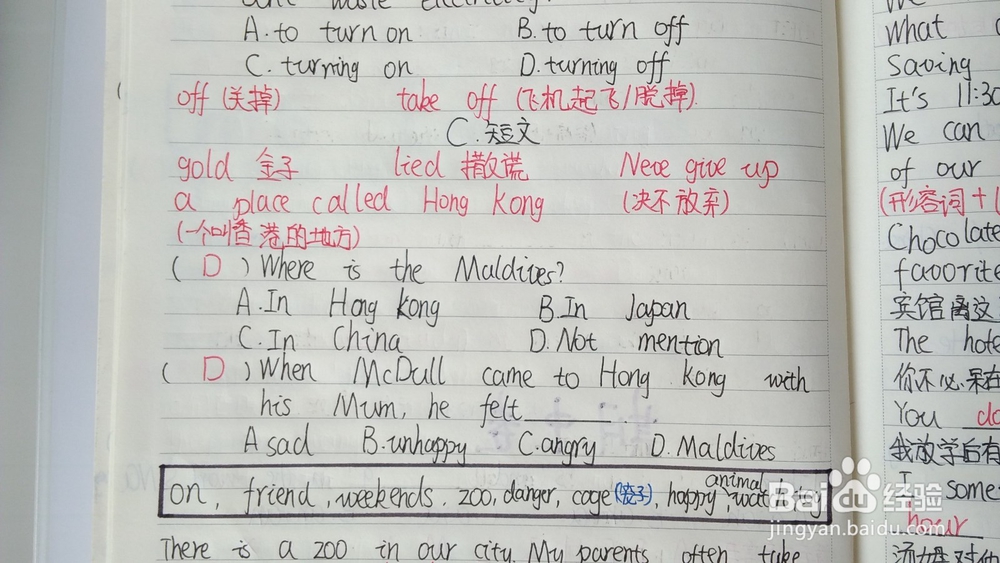 waste electricity.
A. to turn on B. to turn off
C. turning on D. turning off
off (关掉) take off (飞机起飞/脱掉).
C. 短文
gold 金子 lied 撒谎 Neve give up
a place called Hong Kong (决不放弃)
(一个叫香港的地方)
( D ) Where is the Maldives?
A. In Hong kong B. In Japan
C. In China D. Not mention
( D ) When McDull came to Hong Kong with
his Mum, he felt ______.
A sad B. unhappy C. angry D. Maldives
animal
on, friend, weekends, zoo, danger, cage (笼子), happy,
There is a zoo in our city. My parents often take
We
What
Saving
It's 11:30
We can
of our
(形容词+
Chocolate
favorite
宾馆离这
The hote
你不必呆在
You do
我放学后有
I some
hour
Baidu 经验
jingyan.baidu.com